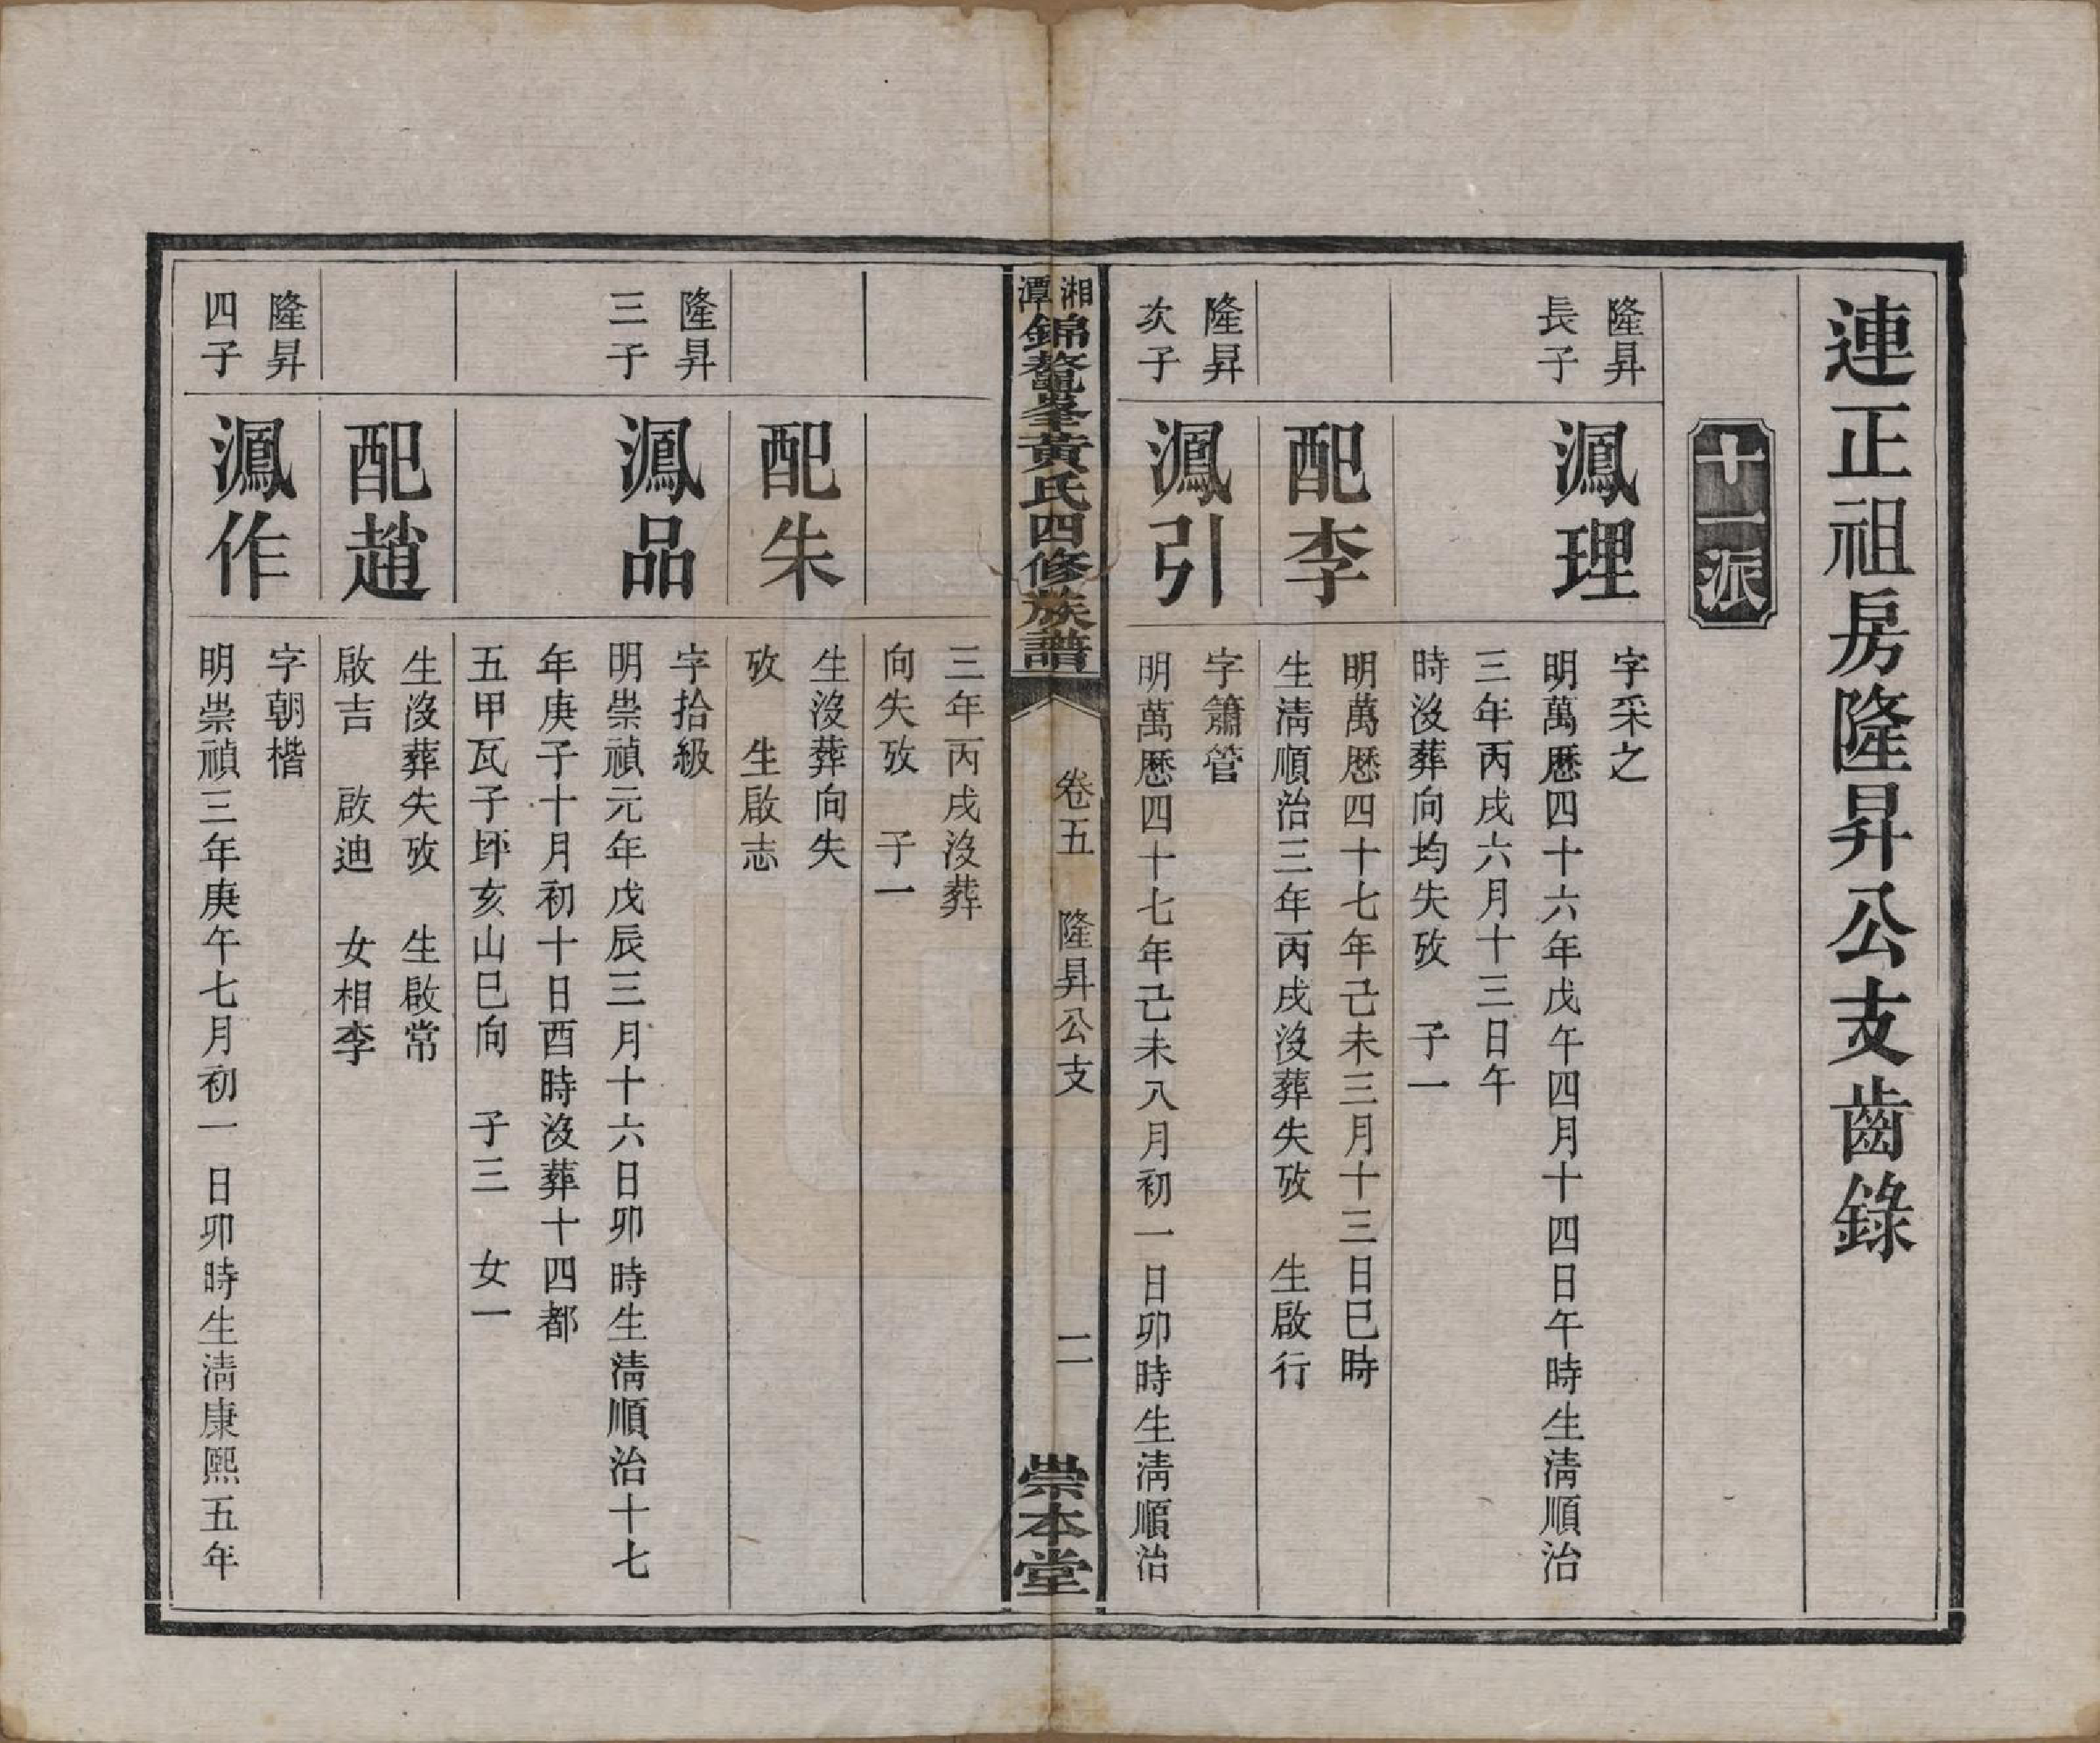 連正祖房隆昇公支齒錄
十一派
隆昇
長子
鳳理
字采之
明萬歷四十六年戊午四月十四日午時生淸順治
三年丙戌六月十三日午
時沒葬向均失攷　子一
配李
明萬歷四十七年己未三月十三日巳時
生淸順治三年丙戌沒葬失攷　生啟行
隆昇
次子
鳳引
字簫管
明萬歷四十七年己未八月初一日卯時生淸順治
湘潭錦鰲峯黃氏四修族譜
卷五　隆昇公支
二
崇本堂
三年丙戌沒葬
向失攷　子一
配朱
生沒葬向失
攷　生啟志
隆昇
三子
鳳品
字拾級
明崇禎元年戊辰三月十六日卯時生淸順治十七
年庚子十月初十日酉時沒葬十四都
五甲瓦子坏亥山巳向　子三　女一
配趙
生沒葬失攷　生啟常
啟吉　啟迪　女相李
隆昇
四子
鳳作
字朝楷
明崇禎三年庚午七月初一日卯時生淸康熙五年